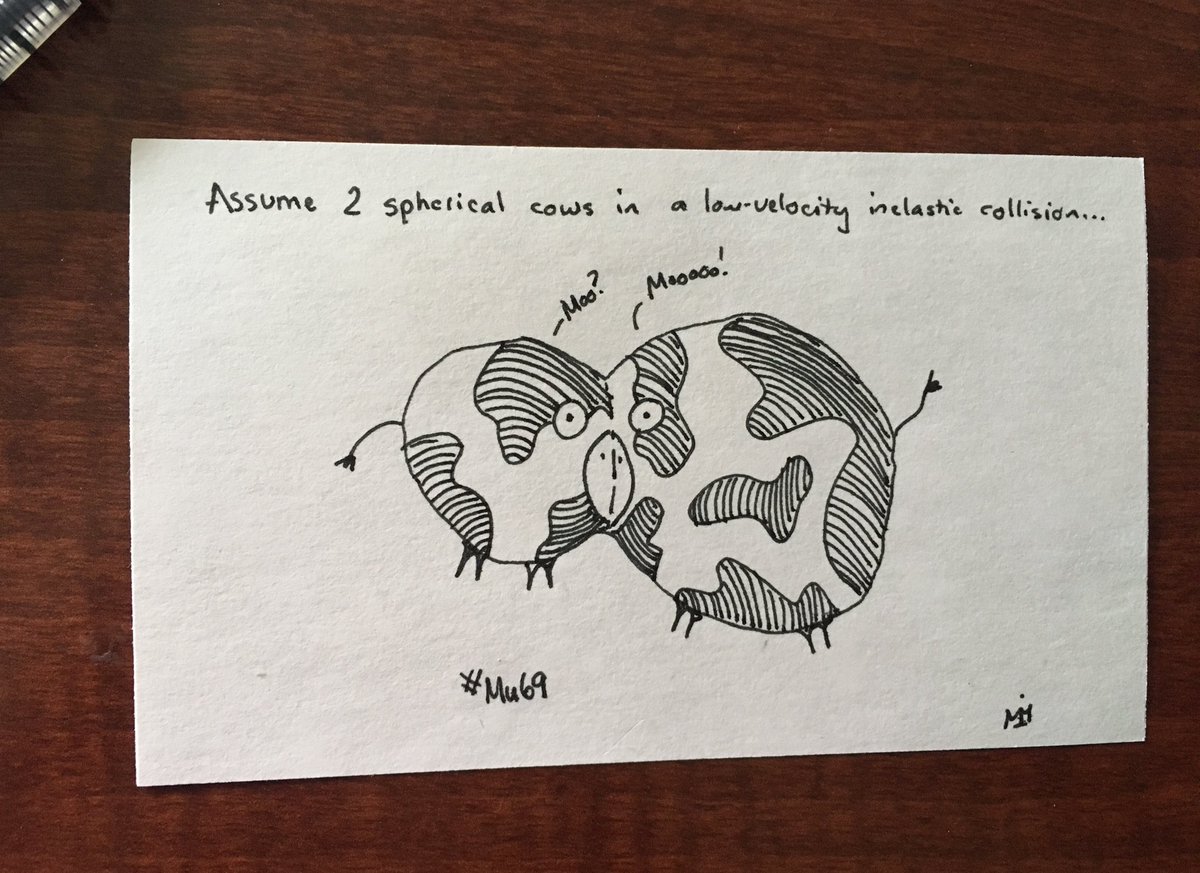 Assume 2 spherical cows in a low-velocity inelastic collision...
Moo?
Mooooo!
#Mu69